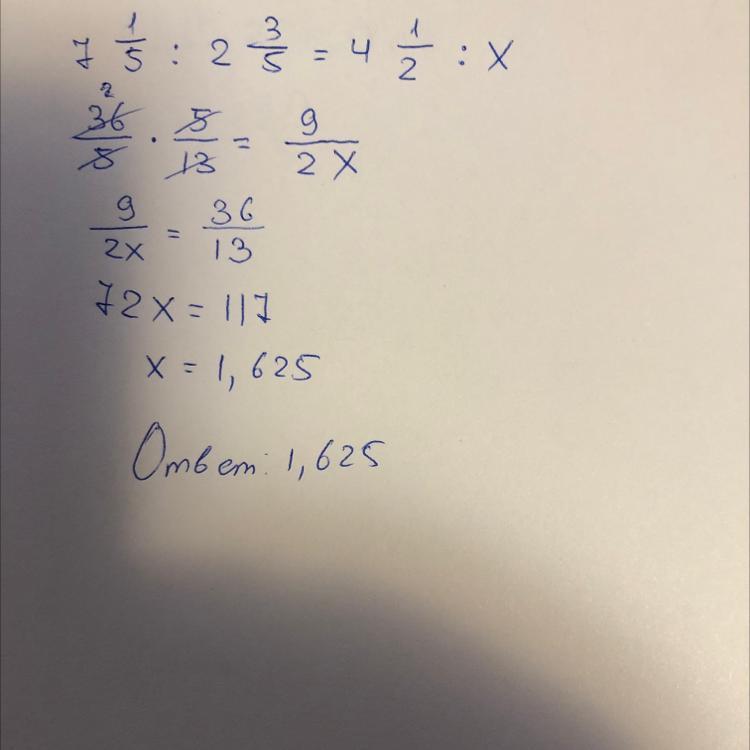 7 1/5 : 2 3/5 = 4 1/2 : x
2
36/5 · 5/13 = 9/2x
9/2x = 36/13
72x = 117
x = 1,625
Ответ: 1,625